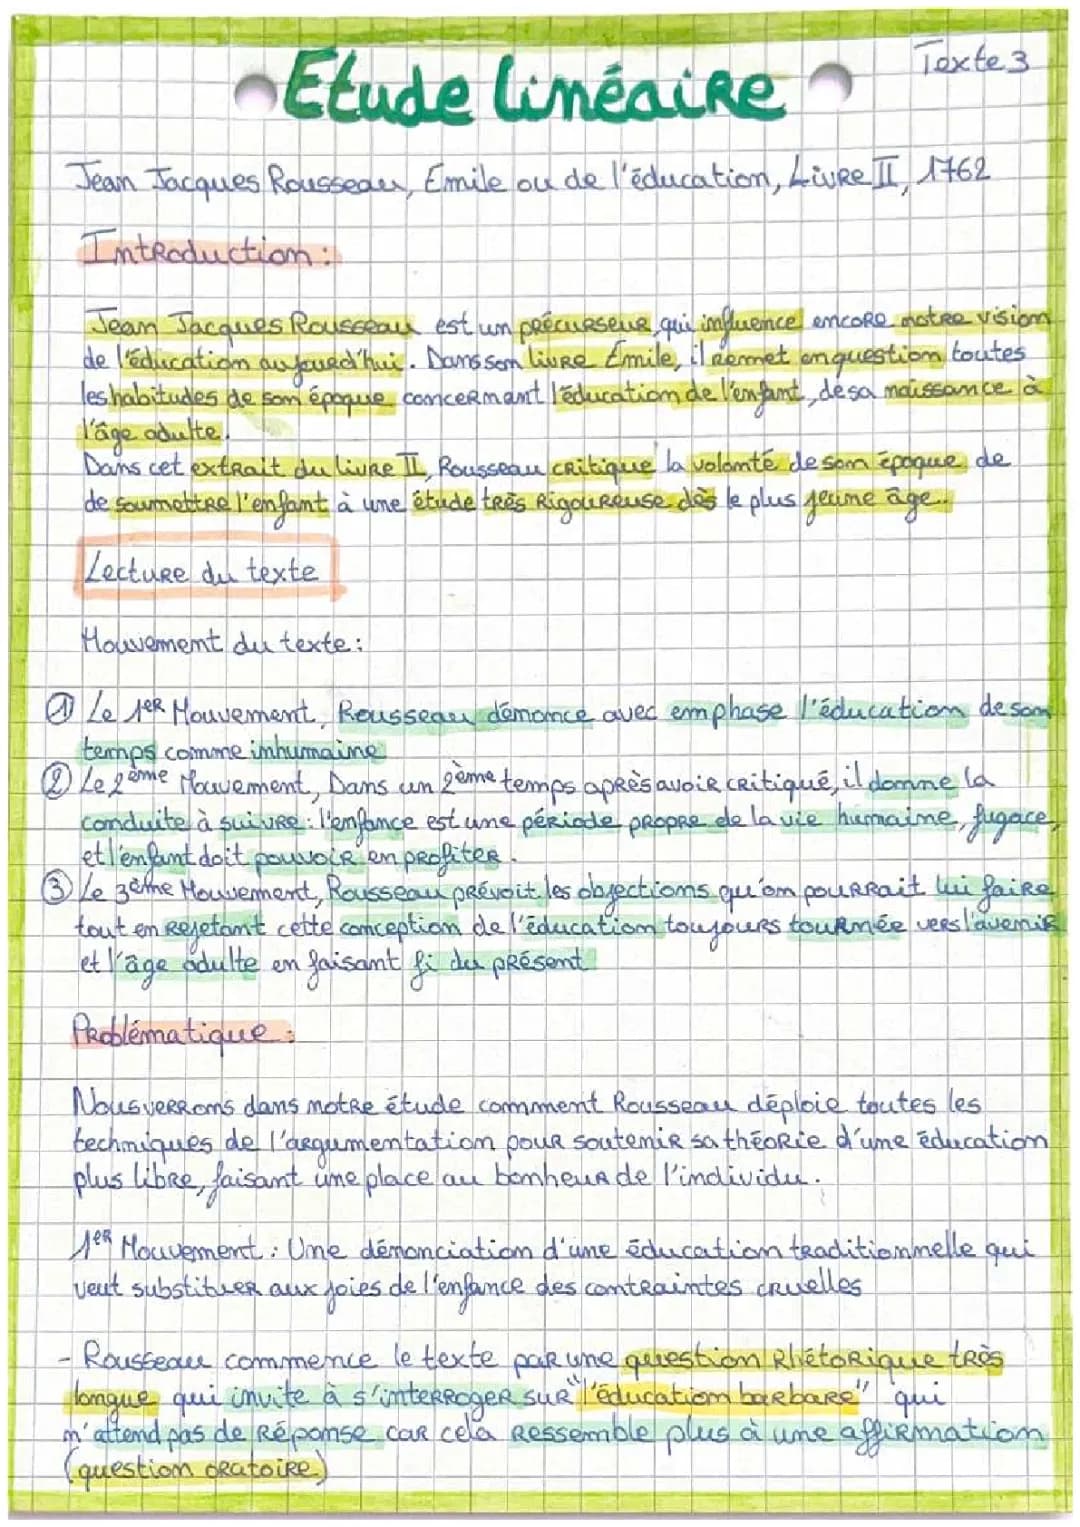 Texte 3
Etude linéaire
Jean Jacques Rousseau, Emile ou de l'éducation, Livre II, 1762
Introduction :
Jean Jacques Rousseau est un précurseur qui influence encore notre vision
de l'éducation aujourd'hui. Dans son livre Émile, il remet en question toutes
les habitudes de son époque concernant l'éducation de l'enfant, de sa naissance à
l'âge adulte.
Dans cet extrait du livre II, Rousseau critique la volonté de son époque de
de soumettre l'enfant à une étude très rigoureuse dès le plus jeune âge..
Lecture du texte
Mouvement du texte :
① Le 1er Mouvement, Rousseau dénonce avec emphase l'éducation de son
temps comme inhumaine
② Le 2ème Mouvement, Dans un 2ème temps après avoir critiqué, il donne la
conduite à suivre : l'enfance est une période propre de la vie humaine, fugace,
et l'enfant doit pouvoir en profiter.
③ Le 3ème Mouvement, Rousseau prévoit les objections qu'on pourrait lui faire
tout en rejetant cette conception de l'éducation toujours tournée vers l'avenir
et l'âge adulte en faisant fi du présent
Problématique :
Nous verrons dans notre étude comment Rousseau déploie toutes les
techniques de l'argumentation pour soutenir sa théorie d'une éducation
plus libre, faisant une place au bonheur de l'individu.
1er Mouvement : Une dénonciation d'une éducation traditionnelle qui
veut substituer aux joies de l'enfance des contraintes cruelles
- Rousseau commence le texte par une question Rhétorique très
longue qui invite à s'interroger sur "l'éducation barbare" qui
n'attend pas de réponse car cela ressemble plus à une affirmation
(question oratoire)